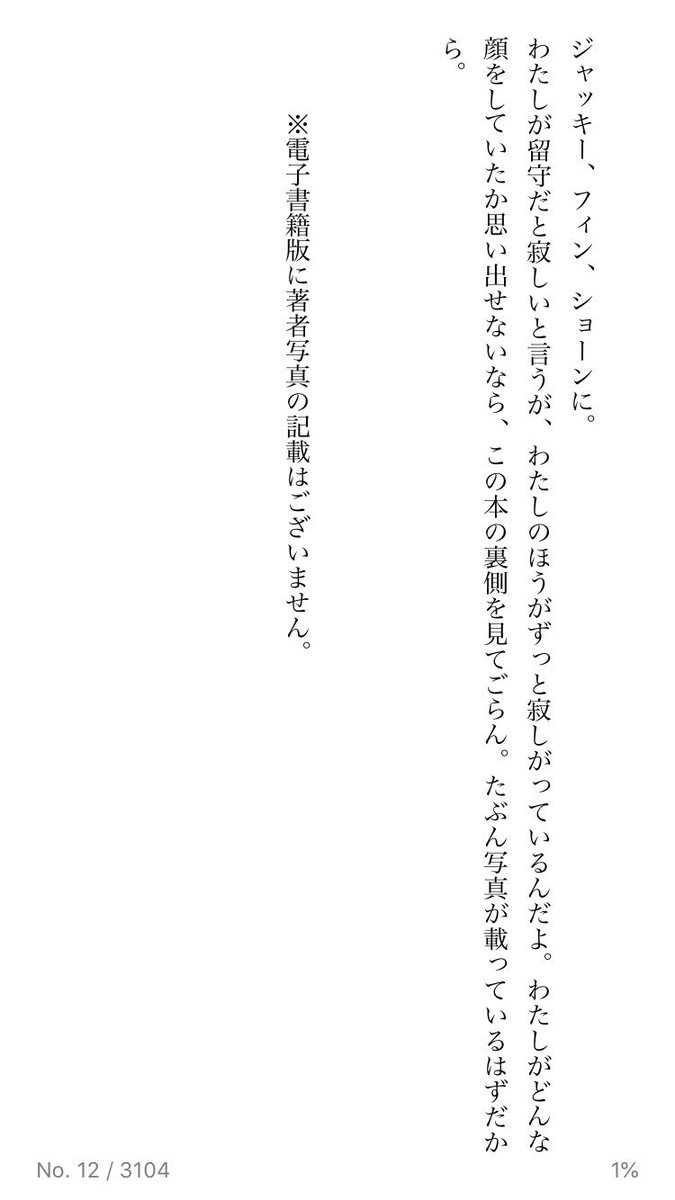 ジャッキー、フィン、ショーンに。
わたしが留守だと寂しいと言うが、わたしのほうがずっと寂しがっているんだよ。わたしがどんな
顔をしていたか思い出せないなら、この本の裏側を見てごらん。たぶん写真が載っているはずだか
ら。
※電子書籍版に著者写真の記載はございません。
No. 12 / 3104
1%